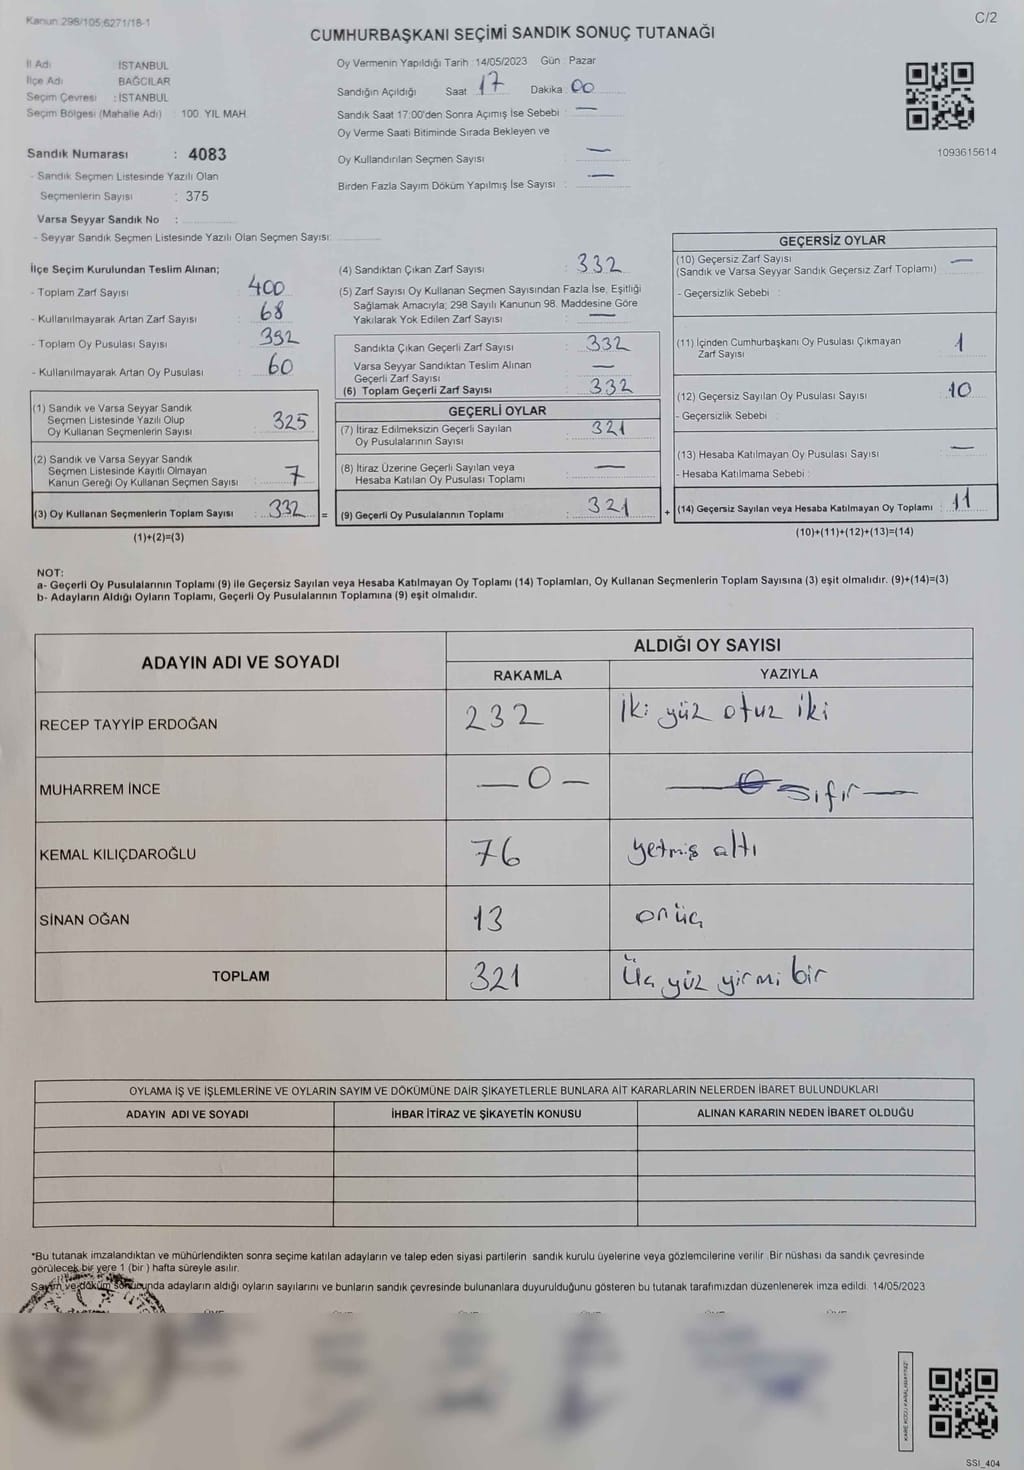 Kanun:298/105;6271/18-1
C/2
CUMHURBAŞKANI SEÇİMİ SANDIK SONUÇ TUTANAĞI
İl Adı : İSTANBUL
İlçe Adı : BAĞCILAR
Seçim Çevresi : İSTANBUL
Seçim Bölgesi (Mahalle Adı) : 100. YIL MAH.
Sandık Numarası : 4083
- Sandık Seçmen Listesinde Yazılı Olan
Seçmenlerin Sayısı : 375
Varsa Seyyar Sandık No :
- Seyyar Sandık Seçmen Listesinde Yazılı Olan Seçmen Sayısı:
Oy Vermenin Yapıldığı Tarih : 14/05/2023 Gün : Pazar
Sandığın Açıldığı Saat : 17 Dakika : 00
Sandık Saat 17:00'den Sonra Açımış İse Sebebi : —
Oy Verme Saati Bitiminde Sırada Bekleyen ve
Oy Kullandırılan Seçmen Sayısı : —
Birden Fazla Sayım Döküm Yapılmış İse Sayısı : —
1093615614
İlçe Seçim Kurulundan Teslim Alınan;
- Toplam Zarf Sayısı : 400
- Kullanılmayarak Artan Zarf Sayısı : 68
- Toplam Oy Pusulası Sayısı : 392
- Kullanılmayarak Artan Oy Pusulası : 60
(1) Sandık ve Varsa Seyyar Sandık
Seçmen Listesinde Yazılı Olup
Oy Kullanan Seçmenlerin Sayısı : 325
(2) Sandık ve Varsa Seyyar Sandık
Seçmen Listesinde Kayıtlı Olmayan
Kanun Gereği Oy Kullanan Seçmen Sayısı : 7
(3) Oy Kullanan Seçmenlerin Toplam Sayısı : 332 =
(1)+(2)=(3)
(4) Sandıktan Çıkan Zarf Sayısı : 332
(5) Zarf Sayısı Oy Kullanan Seçmen Sayısından Fazla İse, Eşitliği
Sağlamak Amacıyla; 298 Sayılı Kanunun 98. Maddesine Göre
Yakılarak Yok Edilen Zarf Sayısı : —
Sandıkta Çıkan Geçerli Zarf Sayısı : 332
Varsa Seyyar Sandıktan Teslim Alınan
Geçerli Zarf Sayısı : —
(6) Toplam Geçerli Zarf Sayısı : 332
GEÇERLİ OYLAR
(7) İtiraz Edilmeksizin Geçerli Sayılan
Oy Pusulalarının Sayısı : 321
(8) İtiraz Üzerine Geçerli Sayılan veya
Hesaba Katılan Oy Pusulası Toplamı : —
(9) Geçerli Oy Pusulalarının Toplamı : 321 +
GEÇERSİZ OYLAR
(10) Geçersiz Zarf Sayısı : —
(Sandık ve Varsa Seyyar Sandık Geçersiz Zarf Toplamı)
- Geçersizlik Sebebi :
(11) İçinden Cumhurbaşkanı Oy Pusulası Çıkmayan
Zarf Sayısı : 1
(12) Geçersiz Sayılan Oy Pusulası Sayısı : 10
- Geçersizlik Sebebi :
(13) Hesaba Katılmayan Oy Pusulası Sayısı : —
- Hesaba Katılmama Sebebi :
(14) Geçersiz Sayılan veya Hesaba Katılmayan Oy Toplamı : 11
(10)+(11)+(12)+(13)=(14)
NOT:
a- Geçerli Oy Pusulalarının Toplamı (9) ile Geçersiz Sayılan veya Hesaba Katılmayan Oy Toplamı (14) Toplamları, Oy Kullanan Seçmenlerin Toplam Sayısına (3) eşit olmalıdır. (9)+(14)=(3)
b- Adayların Aldığı Oyların Toplamı, Geçerli Oy Pusulalarının Toplamına (9) eşit olmalıdır.
ADAYIN ADI VE SOYADI
ALDIĞI OY SAYISI
RAKAMLA YAZIYLA
RECEP TAYYİP ERDOĞAN 232 İki yüz otuz iki
MUHARREM İNCE — 0 — — sıfır —
KEMAL KILIÇDAROĞLU 76 yetmiş altı
SİNAN OĞAN 13 onüç
TOPLAM 321 Üç yüz yirmi bir
OYLAMA İŞ VE İŞLEMLERİNE VE OYLARIN SAYIM VE DÖKÜMÜNE DAİR ŞİKAYETLERLE BUNLARA AİT KARARLARIN NELERDEN İBARET BULUNDUKLARI
ADAYIN ADI VE SOYADI İHBAR İTİRAZ VE ŞİKAYETİN KONUSU ALINAN KARARIN NEDEN İBARET OLDUĞU
*Bu tutanak imzalandıktan ve mühürlendikten sonra seçime katılan adayların ve talep eden siyasi partilerin sandık kurulu üyelerine veya gözlemcilerine verilir. Bir nüshası da sandık çevresinde
görülecek bir yere 1 (bir ) hafta süreyle asılır.
Sayım ve döküm sonucunda adayların aldığı oyların sayılarını ve bunların sandık çevresinde bulunanlara duyurulduğunu gösteren bu tutanak tarafımızdan düzenlenerek imza edildi. 14/05/2023
KARE KODU KARALAMAYINIZ!
SSI_404